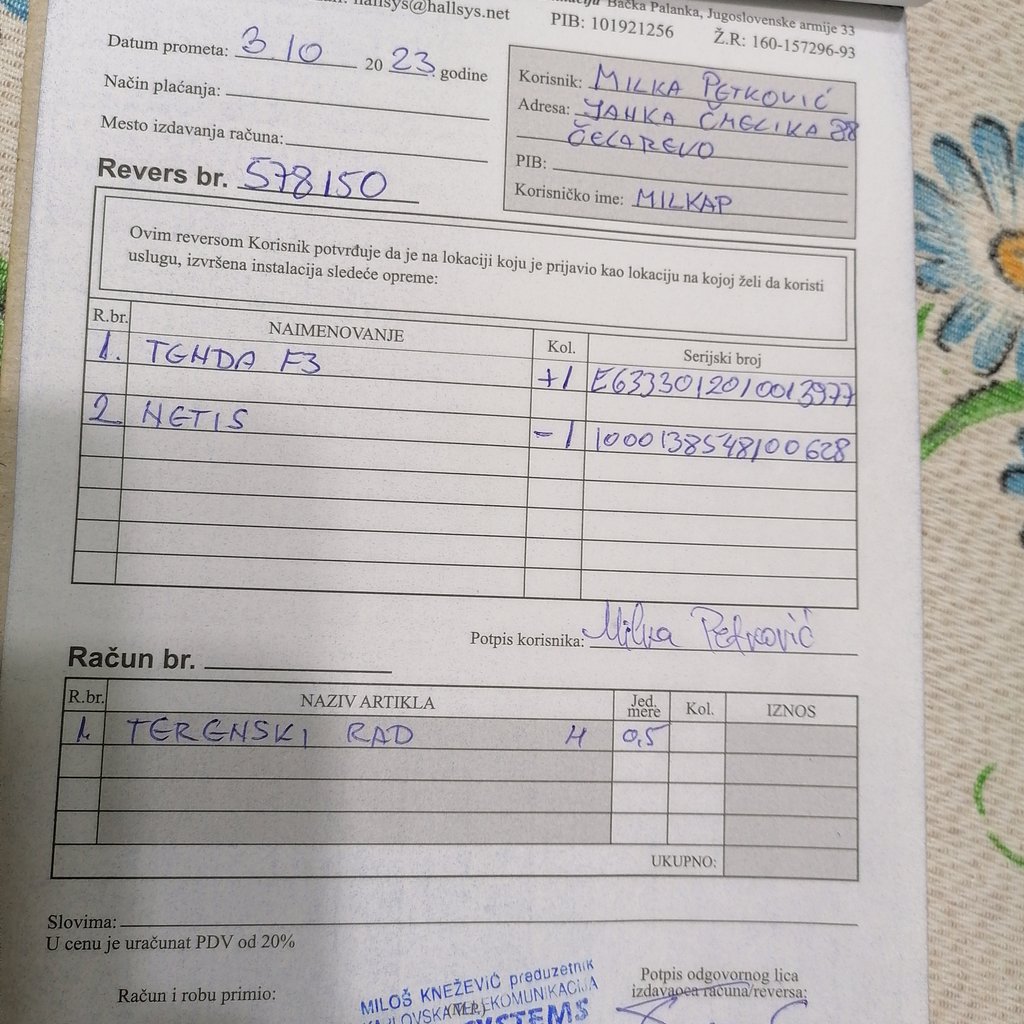 hallsys@hallsys.net
Bačka Palanka, Jugoslovenske armije 33
PIB: 101921256 Ž.R: 160-157296-93
Datum prometa: 3.10 20 23. godine
Način plaćanja:
Mesto izdavanja računa:
Revers br. 578150
Korisnik: MILKA PETKOVIĆ
Adresa: JANKA ČMELIKA 88
ČELAREVO
PIB:
Korisničko ime: MILKAP
Ovim reversom Korisnik potvrđuje da je na lokaciji koju je prijavio kao lokaciju na kojoj želi da koristi
uslugu, izvršena instalacija sledeće opreme:
R.br. NAIMENOVANJE Kol. Serijski broj
1. TENDA F3 +1 E6333012010013977
2 NETIS -1 1000138548100628
Potpis korisnika: Milka Petković
Račun br.
R.br. NAZIV ARTIKLA Jed. mere Kol. IZNOS
1. TERENSKI RAD H 0,5
UKUPNO:
Slovima:
U cenu je uračunat PDV od 20%
Račun i robu primio:
MILOŠ KNEŽEVIĆ preduzetnik
(M.P.)
Potpis odgovornog lica
izdavaoca računa/reversa: